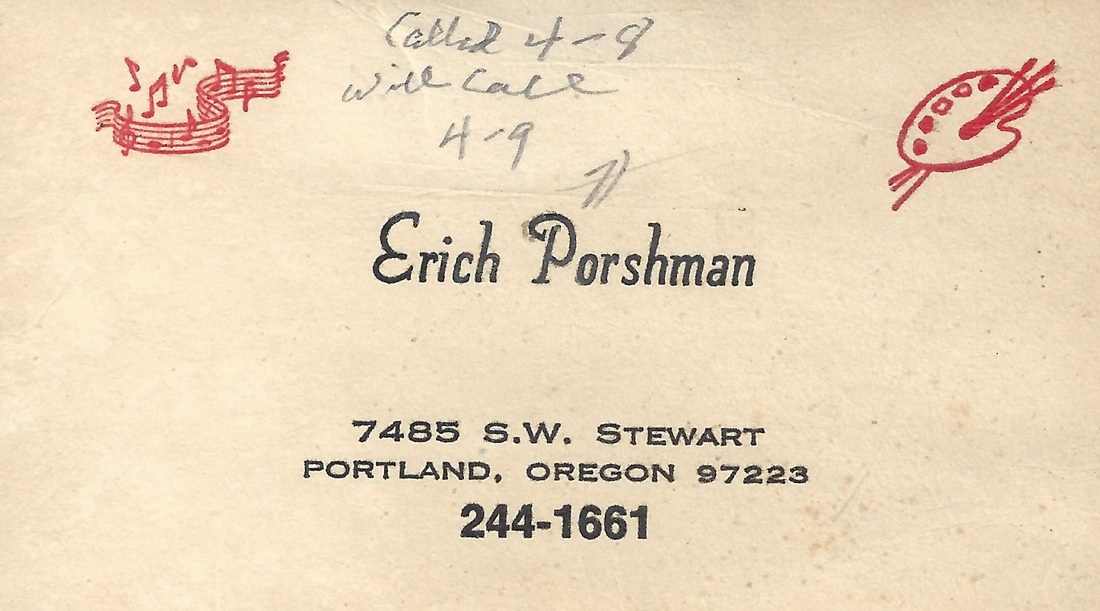 Called 4-8
Will Call
4-9
Erich Porshman
7485 S.W. STEWART
PORTLAND, OREGON 97223
244-1661